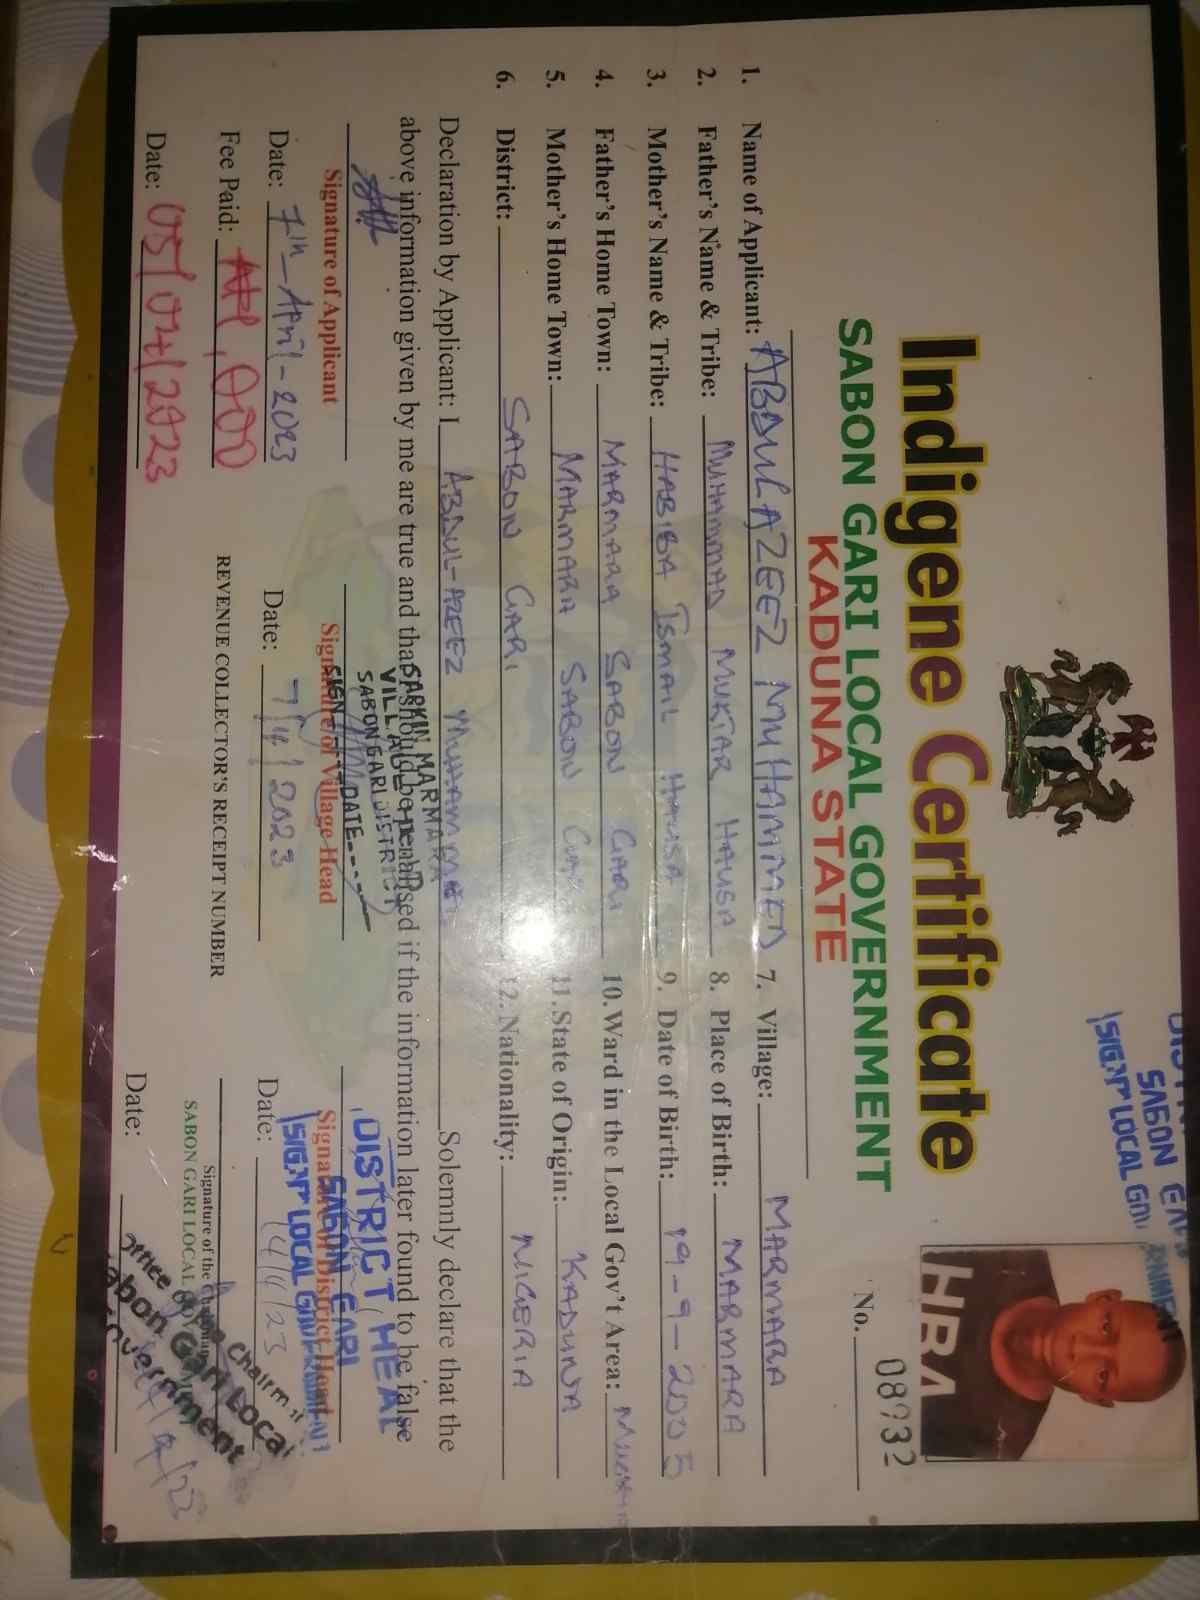 Indigene Certificate
SABON GARI LOCAL GOVERNMENT
KADUNA STATE
SABON GARI
SIGN LOCAL GOV
HBA
No. 08932
1. Name of Applicant: ABDULAZEEZ MUHAMMED
2. Father's Name & Tribe: MUHAMMAD MUKTAR HAUSA
3. Mother's Name & Tribe: HABIBA ISMAIL HAUSA
4. Father's Home Town: MARMARA SABON GARI
5. Mother's Home Town: MARMARA SABON GARI
6. District: SABON GARI
7. Village: MARMARA
8. Place of Birth: MARMARA
9. Date of Birth: 19-9-2005
10. Ward in the Local Gov't Area:
11. State of Origin: KADUNA
12. Nationality: NIGERIA
Declaration by Applicant: I ABDUL-AZEEZ MUHAMMED Solemnly declare that the
above information given by me are true and that I should be penalised if the information later found to be false
SARKIN MARMARA
VILLAGE
SABON GARI DISTRICT
SIGN DATE
DISTRICT HEAD
SABON GARI
SIGN LOCAL GOVERNMENT
Signature of Applicant
Signature of Village Head
Signature of District Head
Date: 7th-April-2023
Date: 7/4/2023
Date: 14/4/23
Fee Paid: ₦1,000
REVENUE COLLECTOR'S RECEIPT NUMBER
Signature of the Chairman
SABON GARI LOCAL GOVERNMENT
Date: 05/04/2023
Date:
Office of the Chairman
Sabon Gari Local
Government